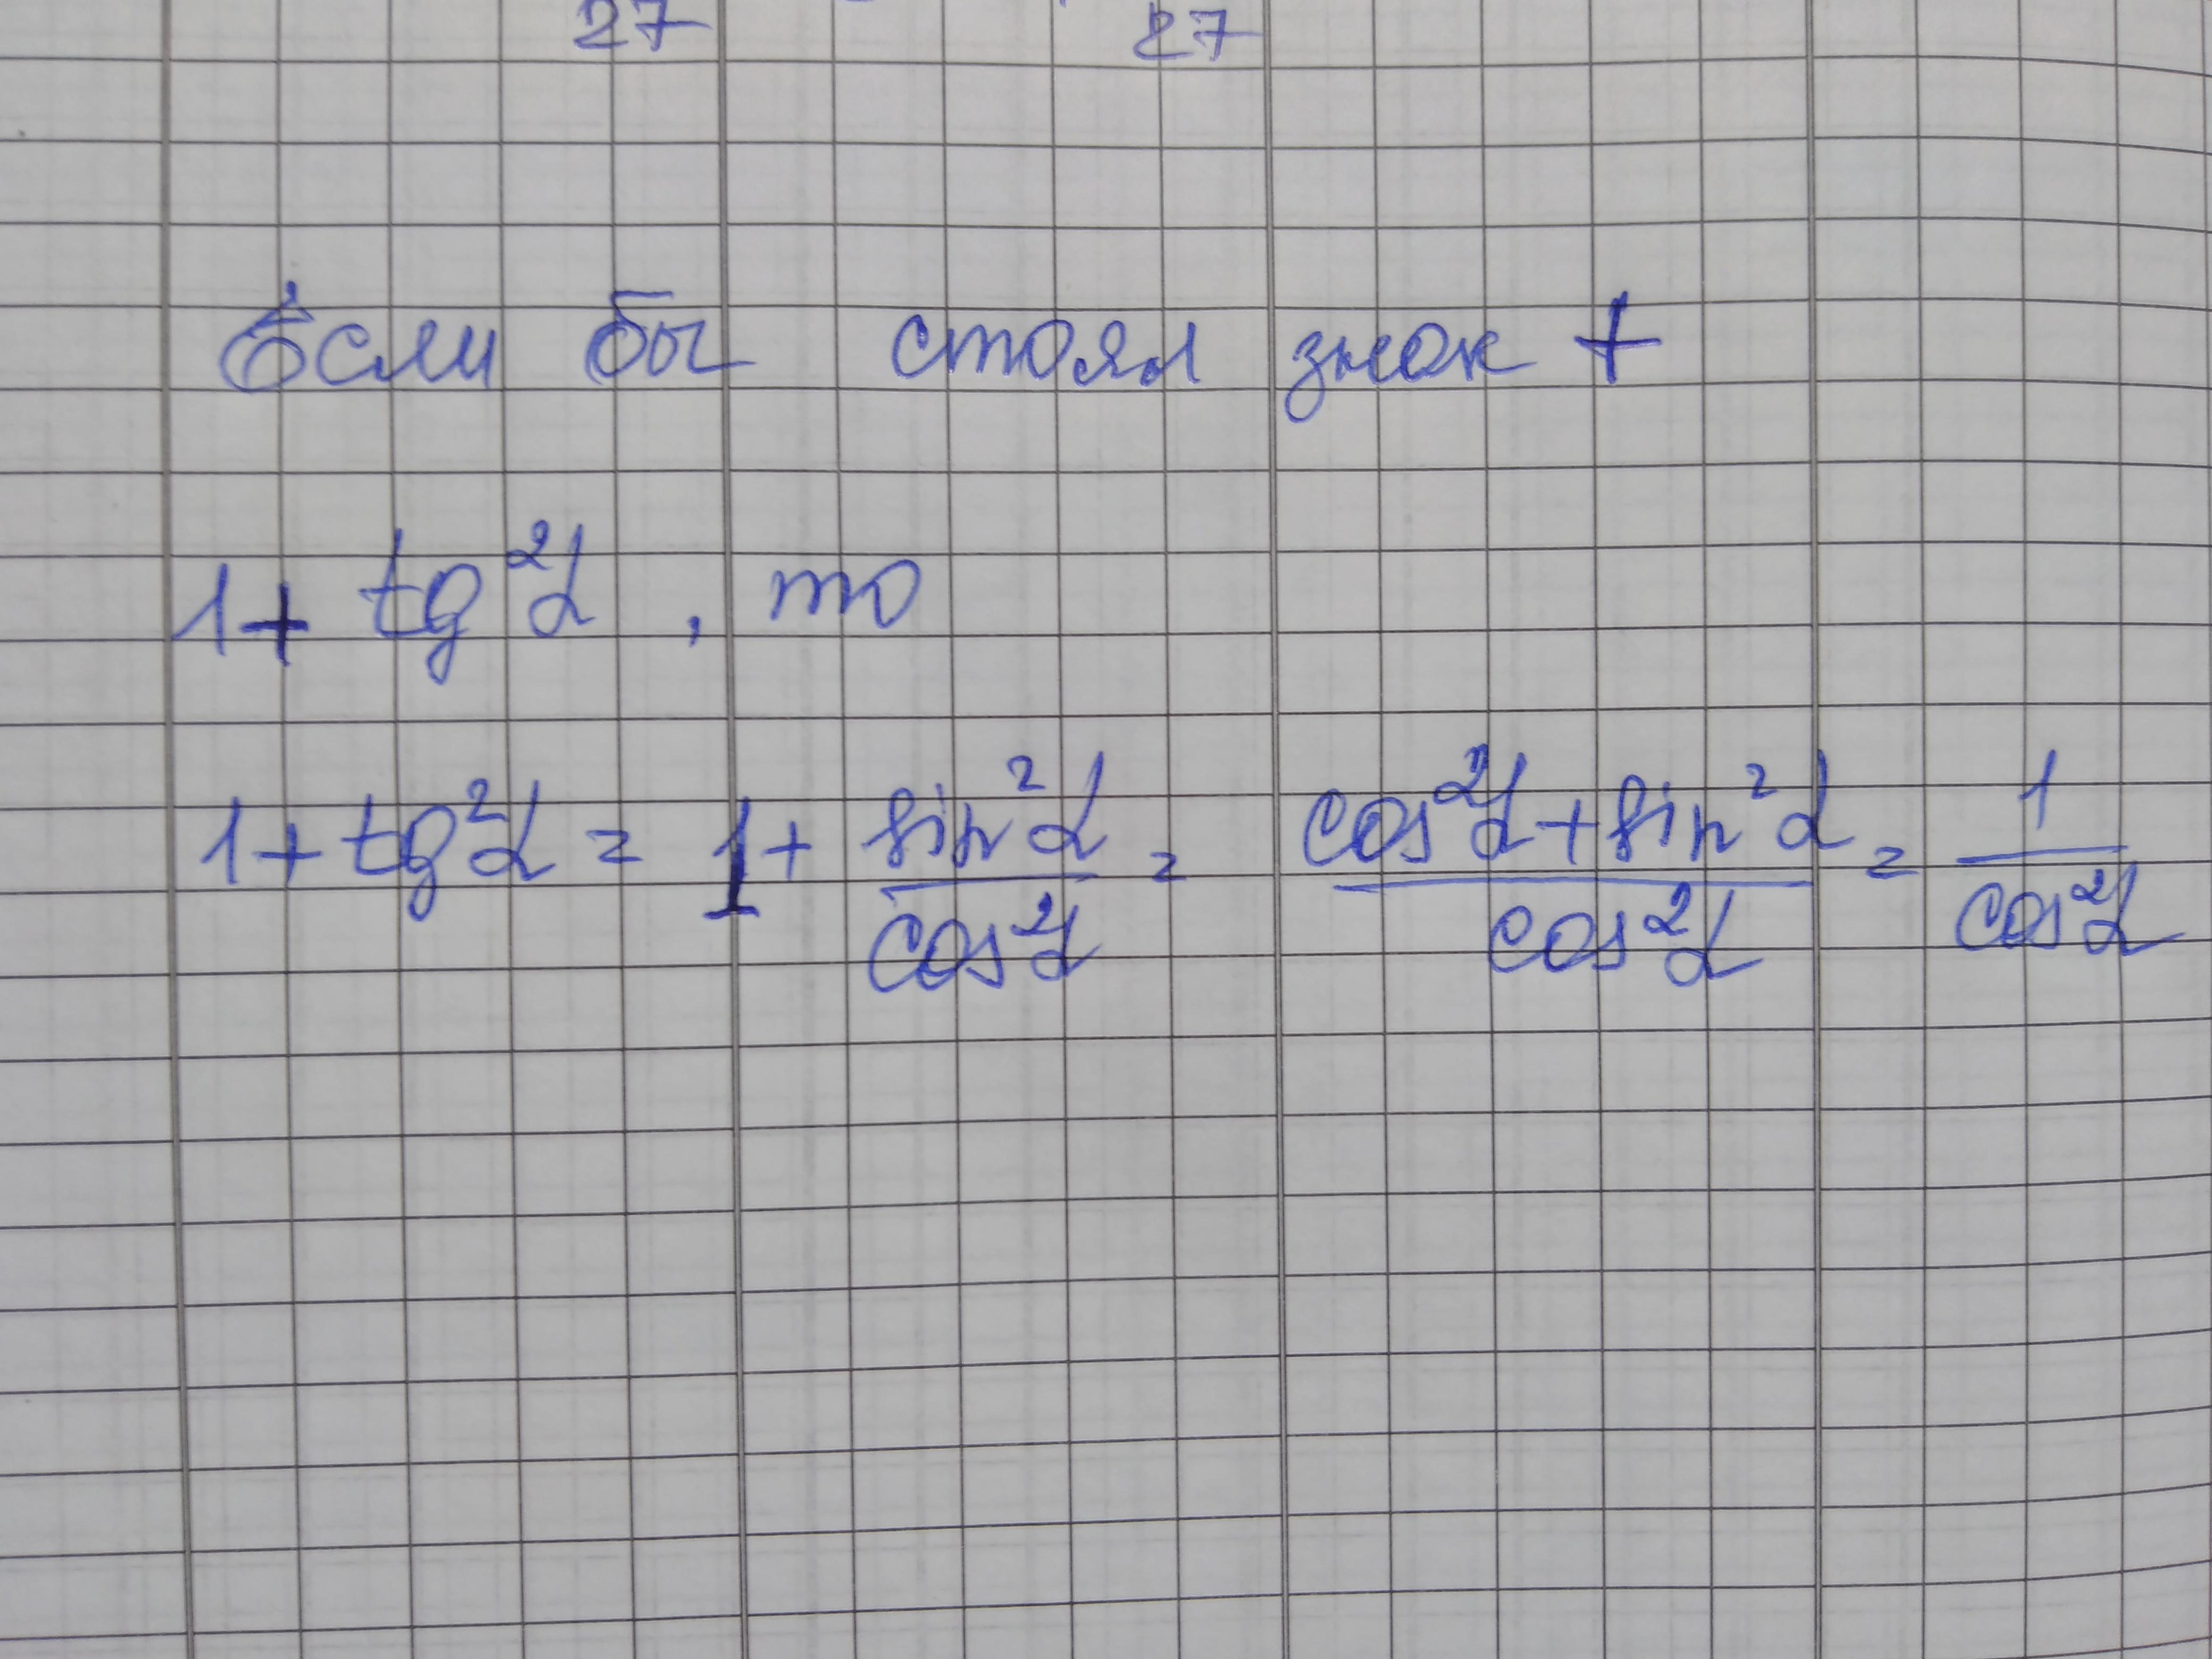 27 27
Если бы стоял знак +
1 + tg²α , то
1 + tg²α = 1 + sin²α / cos²α = (cos²α + sin²α) / cos²α = 1 / cos²α